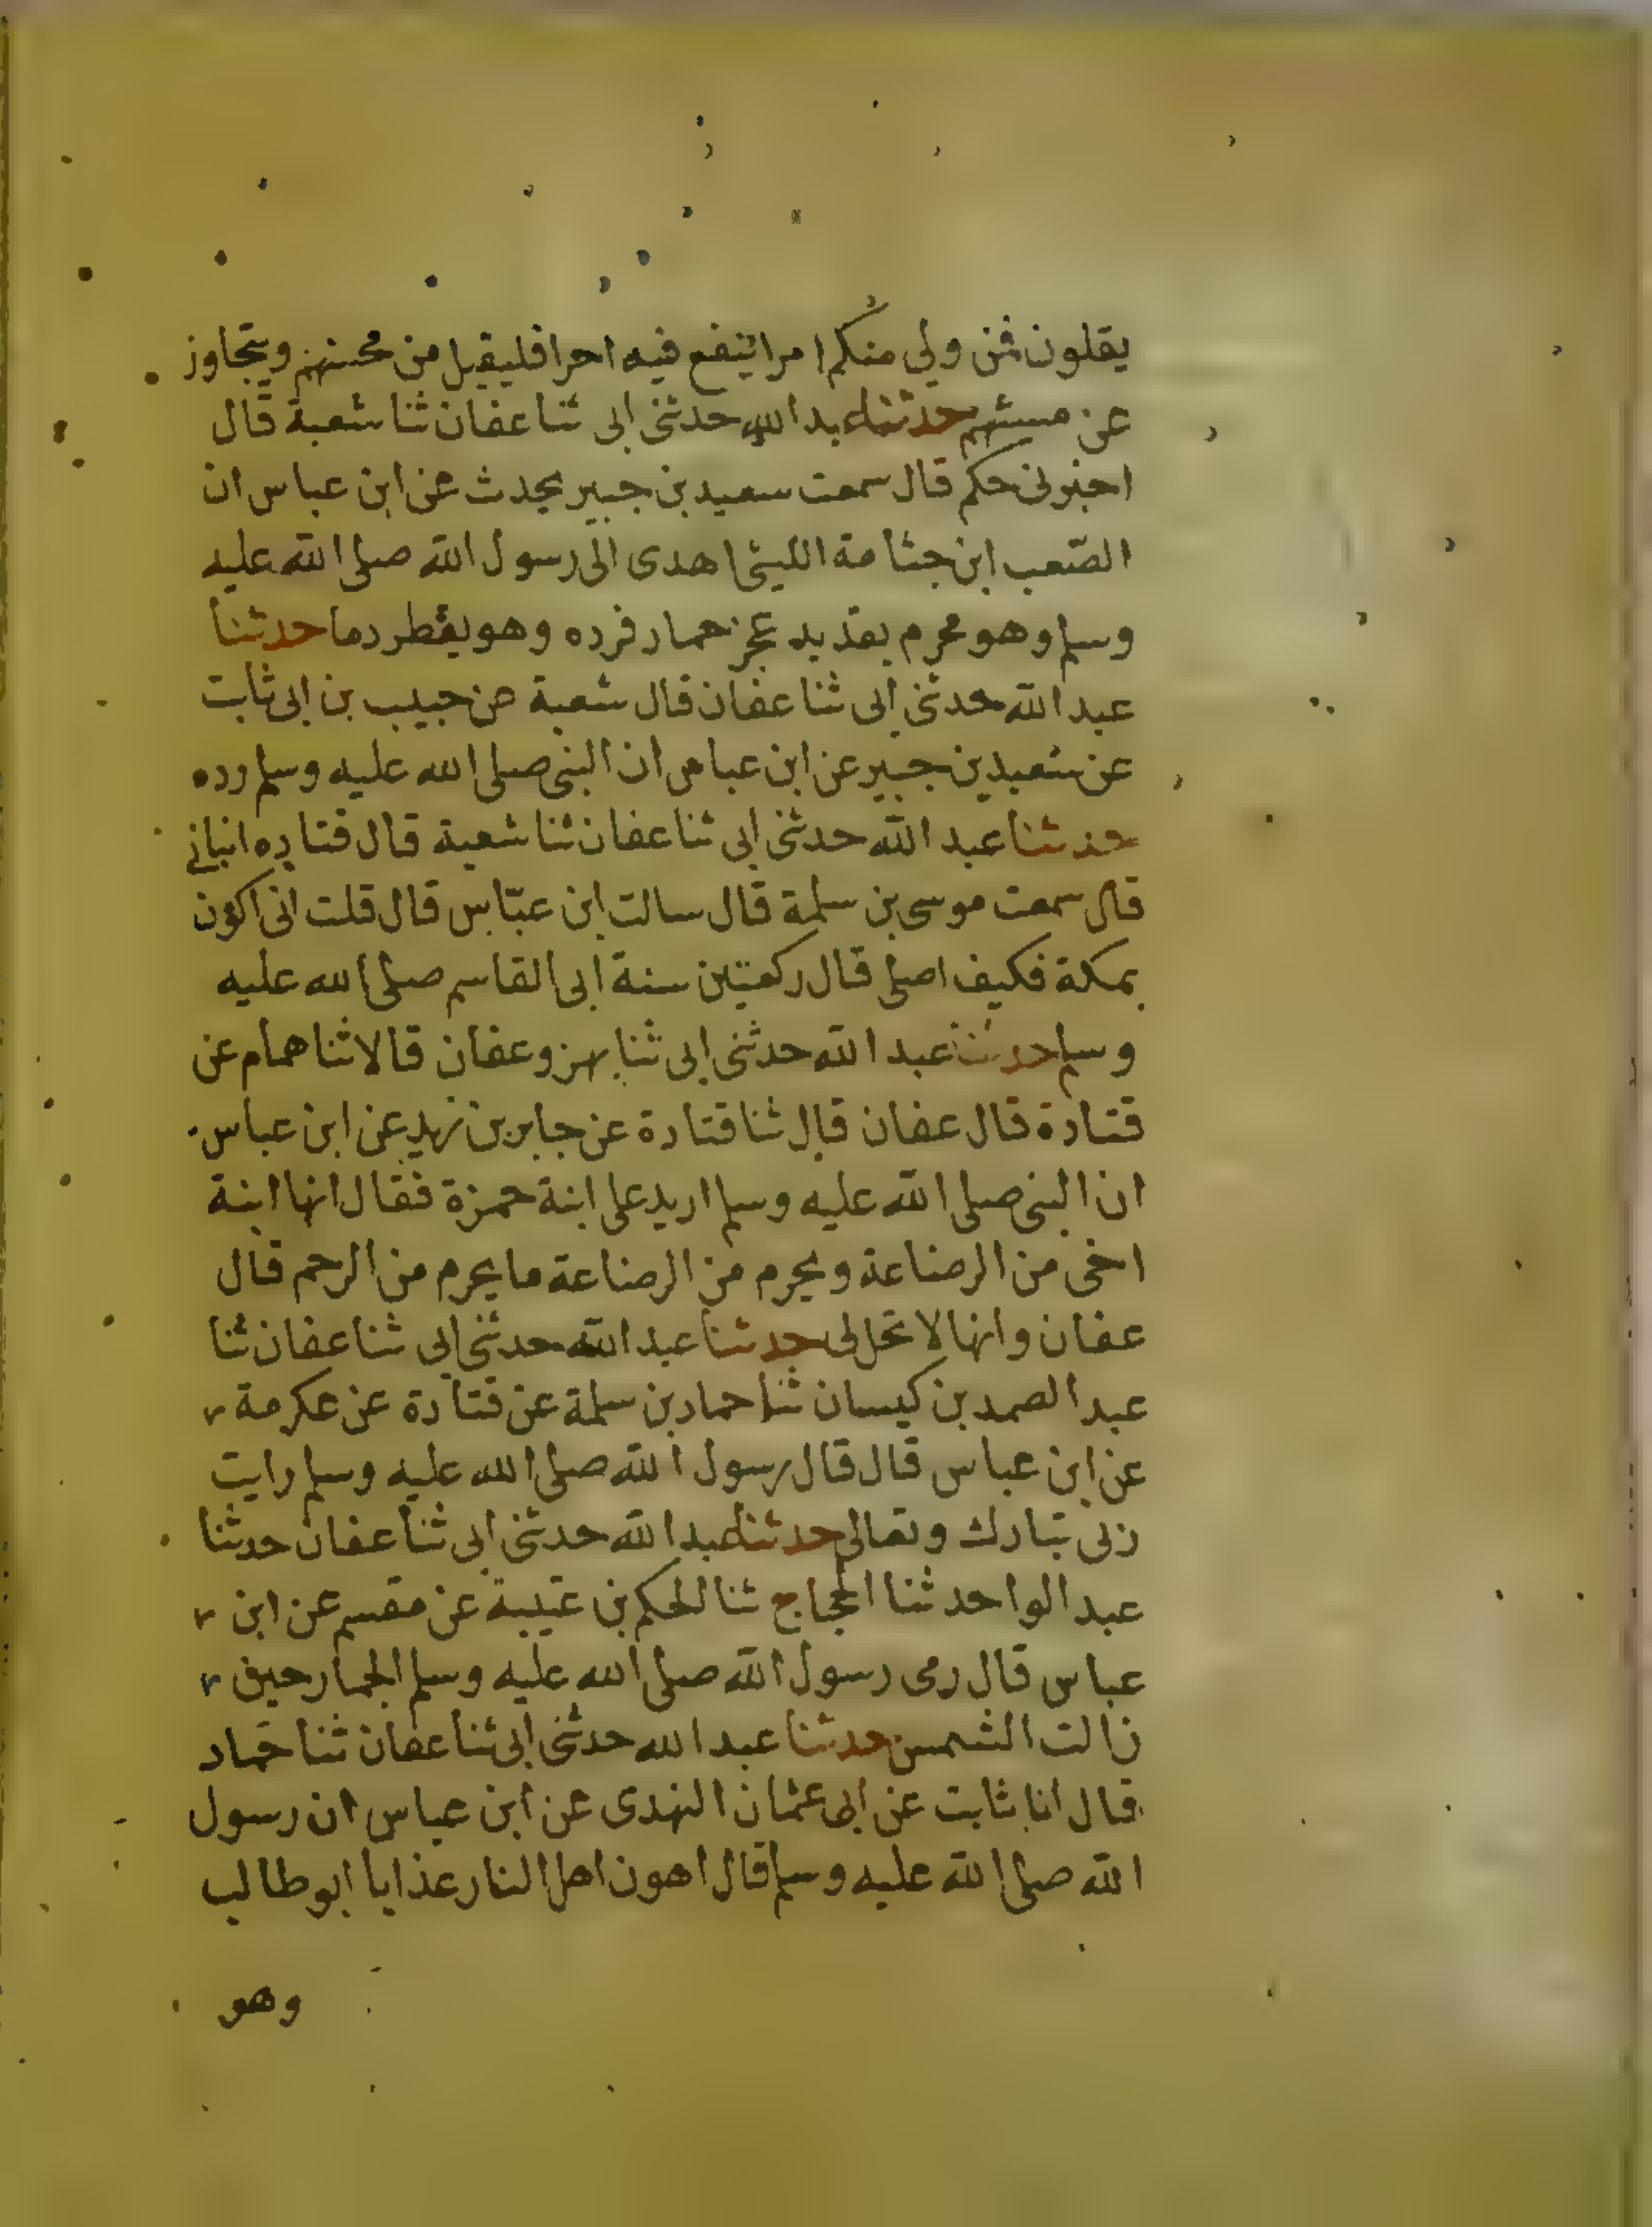 يقلون فمن ولي منكم امرا ينفع فيه احدا فليقبل من محسنهم ويتجاوز
عن مسيئهم حدثنا عبد الله حدثنى ابى ثنا عفان ثنا شعبة قال
اخبرنى حكم قال سمعت سعيد بن جبير يحدث عن ابن عباس ان
الصّعب ابن جثامة الليثى اهدى الى رسول الله صلى الله عليه
وسلم وهو محرم بقديد عجز حمار فرده وهو يقطر دما حدثنا
عبد الله حدثنى ابى ثنا عفان قال شعبة عن حبيب بن ابى ثابت
عن سعيد بن جبير عن ابن عباس ان النبى صلى الله عليه وسلم رده
حدثنا عبد الله حدثنى ابى ثنا عفان ثنا شعبة قال قتادة انبانى
قال سمعت موسى بن سلمة قال سالت ابن عبّاس قال قلت انى اكون
بمكة فكيف اصلى قال ركعتين سنة ابى القاسم صلى الله عليه
وسلم حدثنا عبد الله حدثنى ابى ثنا بهز وعفان قالا ثنا همام عن
قتادة قال عفان قال ثنا قتادة عن جابر بن زيد عن ابن عباس
ان النبى صلى الله عليه وسلم اريد على ابنة حمزة فقال انها ابنة
اخى من الرضاعة ويحرم من الرضاعة ما يحرم من الرحم قال
عفان وانها لا تحل لى حدثنا عبد الله حدثنى ابى ثنا عفان ثنا
عبد الصمد بن كيسان ثنا حماد بن سلمة عن قتادة عن عكرمة
عن ابن عباس قال قال رسول الله صلى الله عليه وسلم رايت
ربى تبارك وتعالى حدثنا عبد الله حدثنى ابى ثنا عفان حدثنا
عبد الواحد ثنا الحجاج ثنا الحكم بن عتيبة عن مقسم عن ابن
عباس قال رمى رسول الله صلى الله عليه وسلم الجمار حين
زالت الشمس حدثنا عبد الله حدثنى ابى ثنا عفان ثنا حماد
قال انا ثابت عن ابى عثمان النهدى عن ابن عباس ان رسول
الله صلى الله عليه وسلم قال اهون اهل النار عذابا ابو طالب
وهو